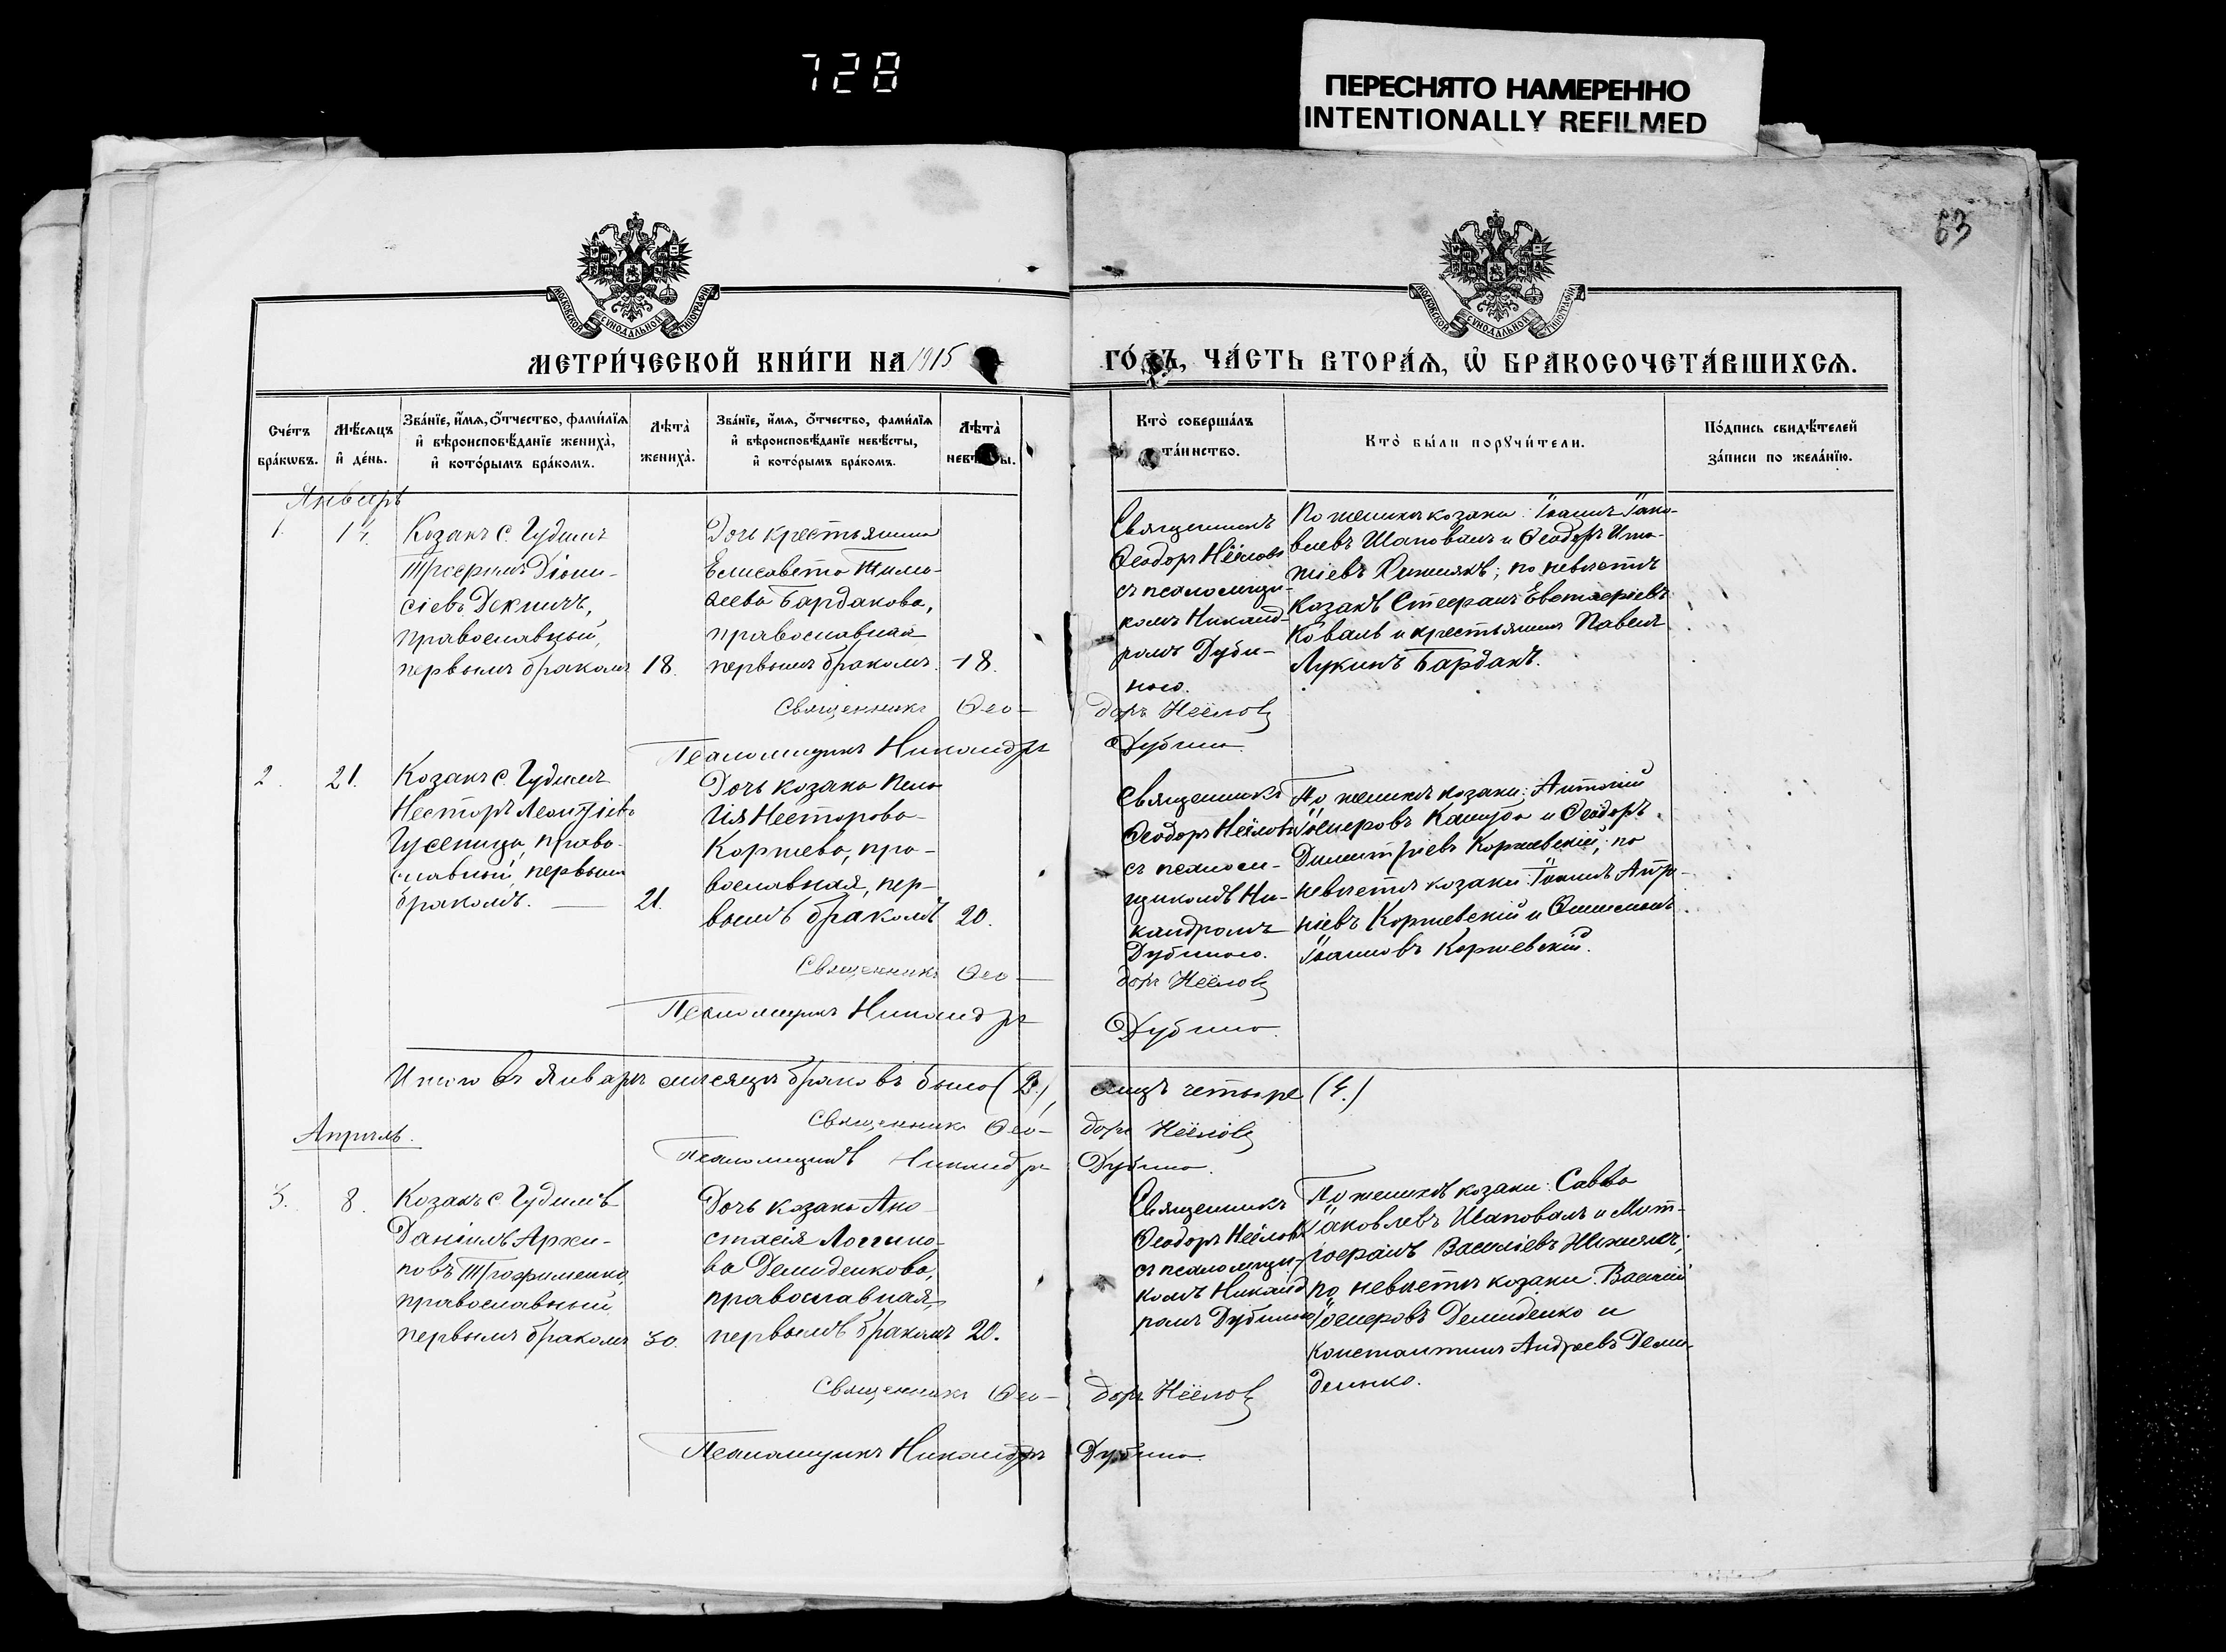 728
ПЕРЕСНЯТО НАМЕРЕННО
INTENTIONALLY REFILMED
63
МОСКОВСКОЙ СѴНОДАЛЬНОЙ ТИПОГРАФІИ
МОСКОВСКОЙ СѴНОДАЛЬНОЙ ТИПОГРАФІИ
МЕТРИ́ЧЕСКОЙ КНИ́ГИ НА 1915 ГО́ДЪ, ЧА́СТЬ ВТОРА́Я, Ѡ҆ БРАКОСОЧЕТА́ВШИХСѦ.
Сче́тъ
бра́кωвъ.
Мѣ́сяцъ
и҆ де́нь.
Зва́нїе, и҆́мѧ, ѻ҆́тчество, фами́лїѧ
и҆ вѣроисповѣ́данїе жениха̀,
и҆ кото́рымъ бра́комъ.
Лѣта̀
жениха̀.
Зва́нїе, и҆́мѧ, ѻ҆́тчество, фами́лїѧ
и҆ вѣроисповѣ́данїе невѣ́сты,
и҆ кото́рымъ бра́комъ.
Лѣта̀
невѣ́сты.
Кто̀ соверша́лъ
та́инство.
Кто̀ бы́ли порꙋчи́тели.
По́дпись свидѣ́телей
за́писи по жела́нїю.
Январь
1.
14.
Козакъ с. Гудимъ
Трифонъ Діони-
сіевъ Декинъ,
православный,
первымъ бракомъ
18.
Дочь крестьянина
Елисавета Тимо-
ѳеева Бардакова,
православная
первымъ бракомъ.
18.
Священникъ
Ѳеодоръ Неёловъ
съ псаломщи-
комъ Никанд-
ромъ Дуби-
ною.
По женихѣ козаки: Іоаннъ Іако-
влевъ Шаповалъ и Ѳеодоръ Игна-
тіевъ Нижникъ; по невѣстѣ
козакъ Стефанъ Евтихіевъ
Коваль и крестьянинъ Павелъ
Лукинъ Бардакъ.
Священникъ Ѳео-доръ Неёловъ
Псаломщикъ Никандръ Дубина.
2.
21.
Козакъ с. Гудимъ
Несторъ Леонтіевъ
Гусеница, право-
славный, первымъ
бракомъ.
21.
Дочь козака Пела-
гія Несторова
Коржева, пра-
вославная, пер-
вымъ бракомъ
20.
Священникъ
Ѳеодоръ Неёловъ
съ псалом-
щикомъ Ни-
кандромъ
Дубиною.
По женихѣ козаки: Антоній
Іосифовъ Кашуба и Ѳеодоръ
Димитріевъ Коржевскій; по
невѣстѣ козаки: Іоаннъ
Коржевскій и
Іоанновъ Коржевскій.
Священникъ Ѳео-доръ Неёловъ
Псаломщикъ Никандръ Дубина.
Итого въ Январѣ мѣсяцѣ браковъ было (2.), лицъ четыре (4.)
Священникъ Ѳео-доръ Неёловъ
Псаломщикъ Никандръ Дубина.
Апрѣль.
3.
8.
Козакъ с. Гудимъ
Даніилъ Архи-
повъ Трофименко,
православный
первымъ бракомъ
30.
Дочь козака Ана-
стасія Логгино-
ва Демиденкова,
православная,
первымъ бракомъ
20.
Священникъ
Ѳеодоръ Неёловъ
съ псаломщи-
комъ Никанд-
ромъ Дубиною
По женихѣ козаки: Савва
Іаковлевъ Шаповалъ и Мит-
рофанъ Василіевъ Нижникъ;
по невѣстѣ козаки: Василій
Іосифовъ Демиденко и
Константинъ Андреевъ Деми-
денко.
Священникъ Ѳео-доръ Неёловъ
Псаломщикъ Никандръ Дубина.